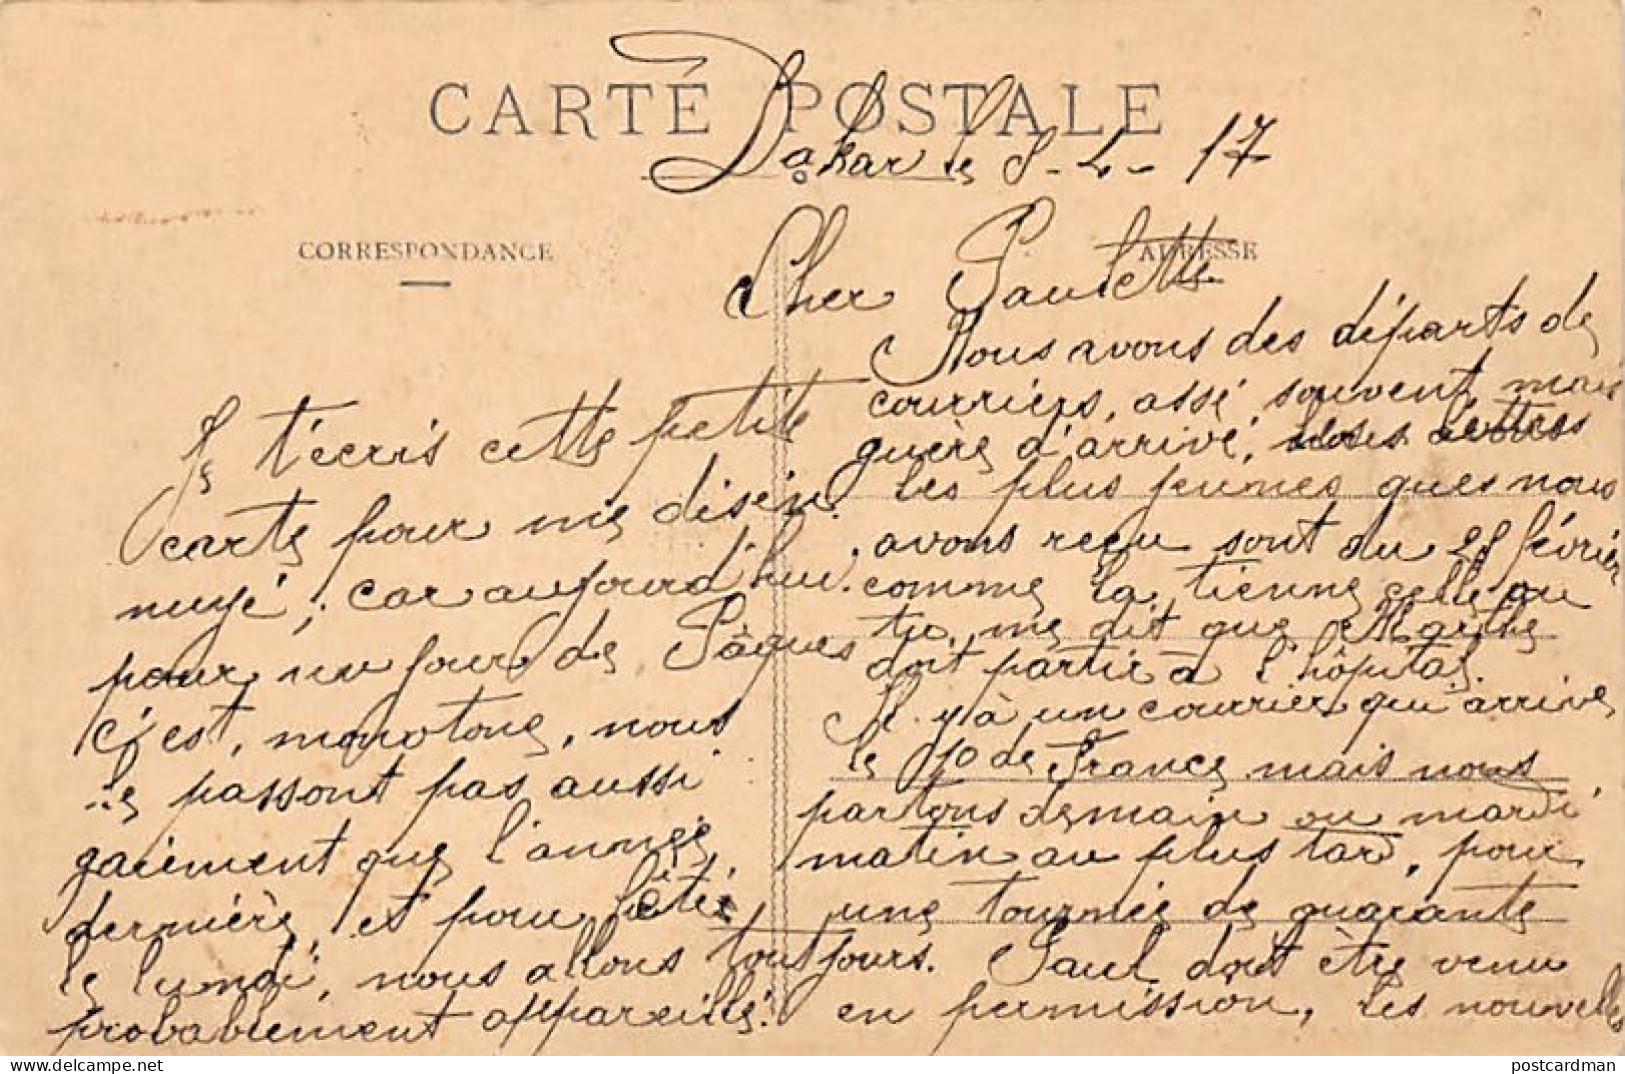 CARTE POSTALE
Dakar le 8-4-17
CORRESPONDANCE
ADRESSE
Cher Paulette
Je t'écris cette petite
carte pour me désen
nuyé, car aujourd'hui
pour un jour de Pâques
c'est, monotone, nous
ne passont pas aussi
gaiement que l'année
dernière, et pour fêter
le lundi, nous allons toujours
probablement appareillé.
Nous avons des départs de
courriers, assé, souvent, mais
guère d'arrivé, les lettres
les plus jeunes ques nous
avons reçu sont du 28 février
comme la tienne celle ou
tu me dit que Marthe
doit partir à l'hôpital
Il y à un courrier qui arrive
le 10 de France mais nous
partons demain ou mardi
matin au plus tard, pour
une tournée de quarante
jours. Paul doit être venu
en permission, les nouvelles
postcardman